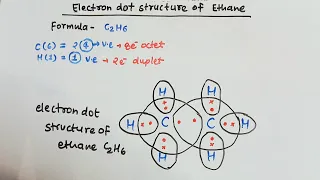 Electron dot structure of Ethane
Formula- C2H6
C(6) = 2 4 → v.e → 8e⁻ octet
H(1) = 1 v.e → 2e⁻ duplet
H H
H C C H
H H
electron dot
structure of
ethane C2H6